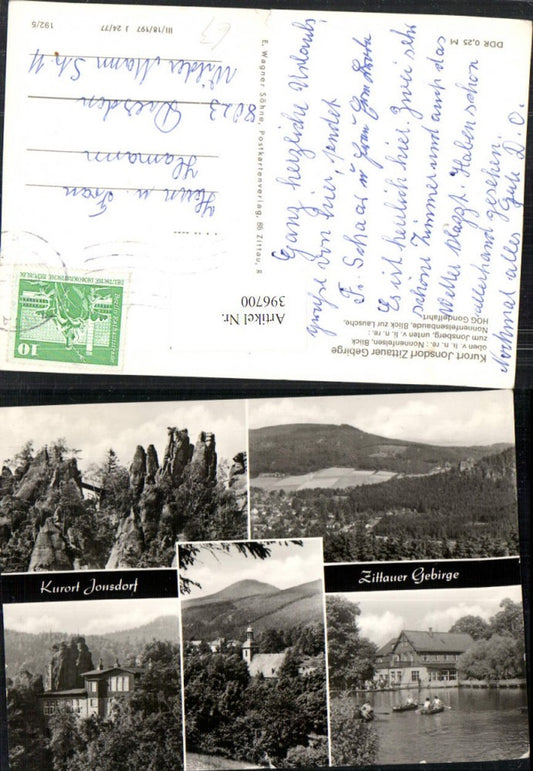 DDR 0,25 M
III/18/197 J 24/77
192/5
E. Wagner Söhne, Postkartenverlag, 86 Zittau, R
Ganz herzliche Urlaubs
grüße von hier sendet
Fr. Schaar u.
Es ist herrlich hier. Zwei sehr
schöne Zimmer und auch das
Wetter klappt. Haben schon
allerhand gesehen.
Nochmal alles Gute D. O.
Herrn u. Frau
Hamann
8023 Dresden
Kurort Jonsdorf Zittauer Gebirge
oben v. li. n. re.: Nonnenfelsen, Blick
zum Jonsberg, unten v. li. n. re.:
Nonnenfelsenbaude, Blick zur Lausche,
HOG Gondelfahrt
Artikel Nr.
396700
10
DEUTSCHE DEMOKRATISCHE REPUBLIK
Kurort Jonsdorf
Zittauer Gebirge